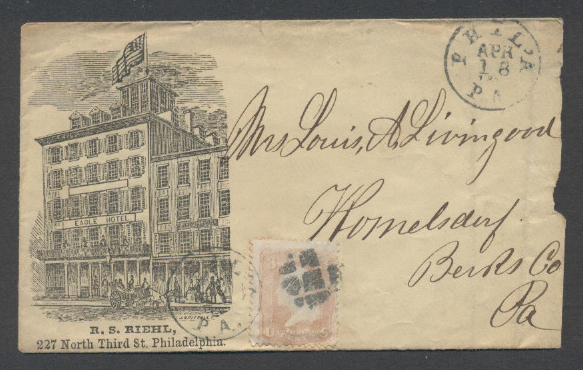 EAGLE HOTEL
R. S. RIEHL,
227 North Third St. Philadelphia.
PHIL'A
APR
18
PA
Mrs Louis, A. Livingood
Womelsdorf.
Berks Co
Pa
PA.